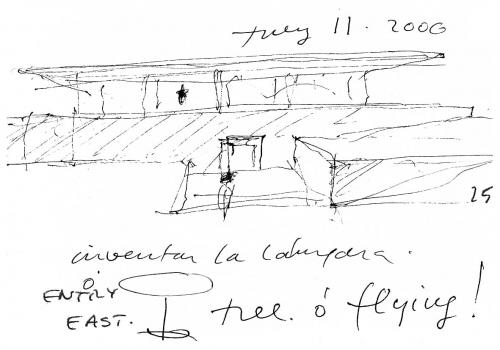 July 11. 2000
25
inventar la lampara.
ó
ENTRY
EAST.
tree. ó flying!